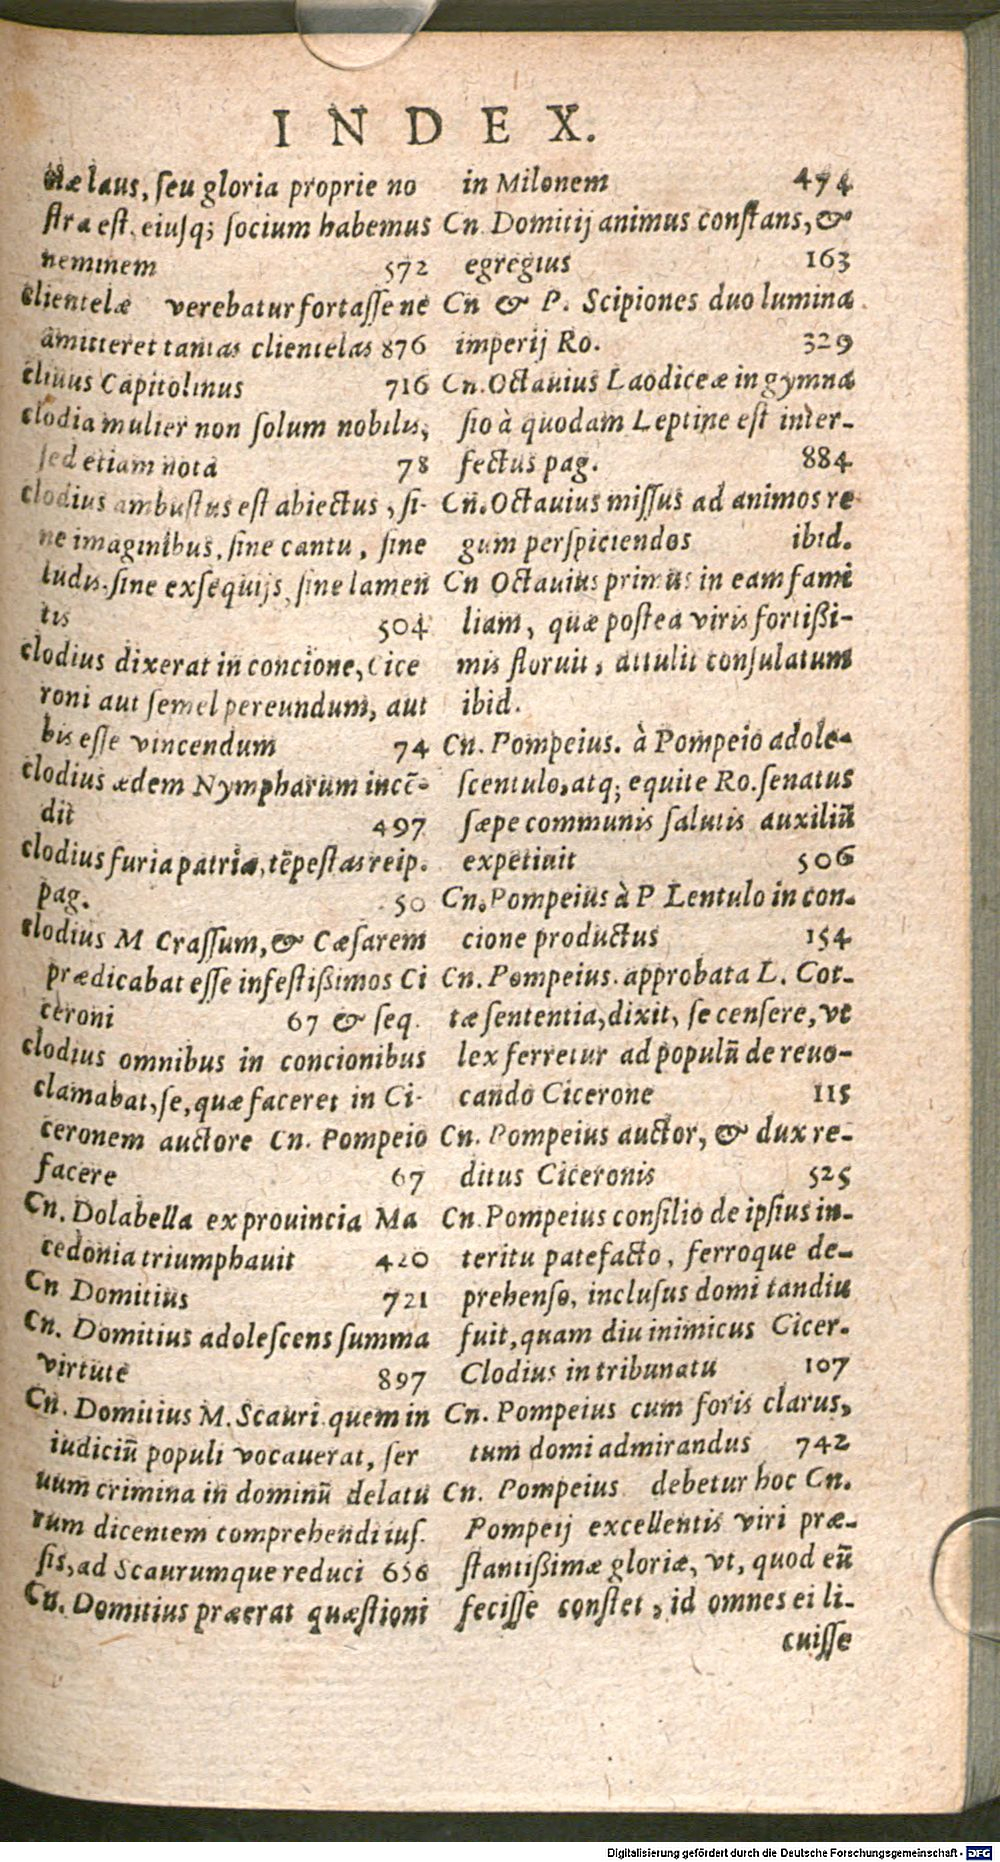 INDEX.
næ laus, ſeu gloria proprie no
ſtra eſt, eiuſq; ſocium habemus
neminem 572
clientelæ verebatur fortaſſe ne
amitteret tantas clientelas 876
cliuus Capitolinus 716
clodia mulier non ſolum nobilis,
ſed etiam nota 78
clodius ambuſtus eſt abiectus, ſi-
ne imaginibus, ſine cantu, ſine
ludis, ſine exſequijs, ſine lamen
tis 504
clodius dixerat in concione, Cice
roni aut ſemel pereundum, aut
bis eſſe vincendum 74
clodius ædem Nympharum incē-
dit 497
clodius furia patriæ, tēpeſtas reip.
pag. 50
clodius M Craſſum, & Cæſarem
prædicabat eſſe infeſtißimos Ci
ceroni 67 & ſeq.
clodius omnibus in concionibus
clamabat, ſe, quæ faceret in Ci-
ceronem auctore Cn. Pompeio
facere 67
Cn. Dolabella ex prouincia Ma
cedonia triumphauit 420
Cn Domitius 721
Cn. Domitius adoleſcens ſumma
virtute 897
Cn. Domitius M. Scauri quem in
iudiciū populi vocauerat, ſer
uum crimina in dominū delatu
rum dicentem comprehendi iuſ.
ſis, ad Scaurumque reduci 656
Cn. Domitius præerat quæſtioni
in Milonem 474
Cn. Domitij animus conſtans, &
egregius 163
Cn & P. Scipiones duo lumina
imperij Ro. 329
Cn. Octauius Laodiceæ in gymna
ſio à quodam Leptine eſt inter-
fectus pag. 884
Cn. Octauius miſſus ad animos re
gum perſpiciendos ibid.
Cn Octauius primus in eam fami
liam, quæ poſtea viris fortißi-
mis floruit, attulit conſulatum
ibid.
Cn. Pompeius. à Pompeio adole-
ſcentulo, atq; equite Ro. ſenatus
ſæpe communis ſalutis auxiliū
expetiuit 506
Cn. Pompeius à P Lentulo in con-
cione productus 154
Cn. Pompeius. approbata L. Cot-
tæ ſententia, dixit, ſe cenſere, vt
lex ferretur ad populū de reuo-
cando Cicerone 115
Cn. Pompeius auctor, & dux re-
ditus Ciceronis 525
Cn. Pompeius conſilio de ipſius in-
teritu patefacto, ferroque de-
prehenſo, incluſus domi tandiu
fuit, quam diu inimicus Cicer.
Clodius in tribunatu 107
Cn. Pompeius cum foris clarus,
tum domi admirandus 742
Cn. Pompeius debetur hoc Cn.
Pompeij excellentis viri præ-
ſtantißimæ gloriæ, vt, quod eū
feciſſe conſtet, id omnes ei li-
cuiſſe
Digitalisierung gefördert durch die Deutsche Forschungsgemeinschaft - DFG